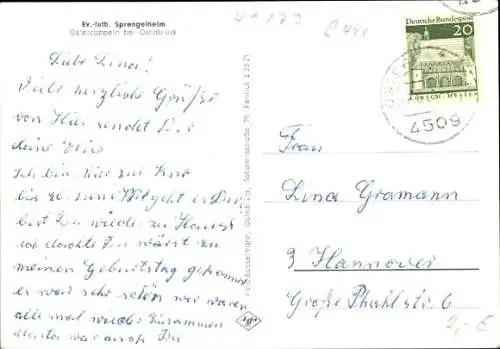 Ev.-luth. Sprengelheim
Ostercappeln bei Osnabrück
Deutsche Bundespost
20
LORSCH · HESSEN
4509
Liebe Lina!
Viele herzliche Grüße
von Hier sendet Dir
deine
Ich bin hier zur Kur
bis 20. Juni Wie geht es Dir
bist Du wieder zu Hause
ich dachte Du wärst zu
meinen Geburtstag gekommen
es war sehr schön wir waren
alle mal wieder zusammen
war auch Du
Frau
Lina Gramann
3 Hannover
Große Pfahlstr. 6
2,- E